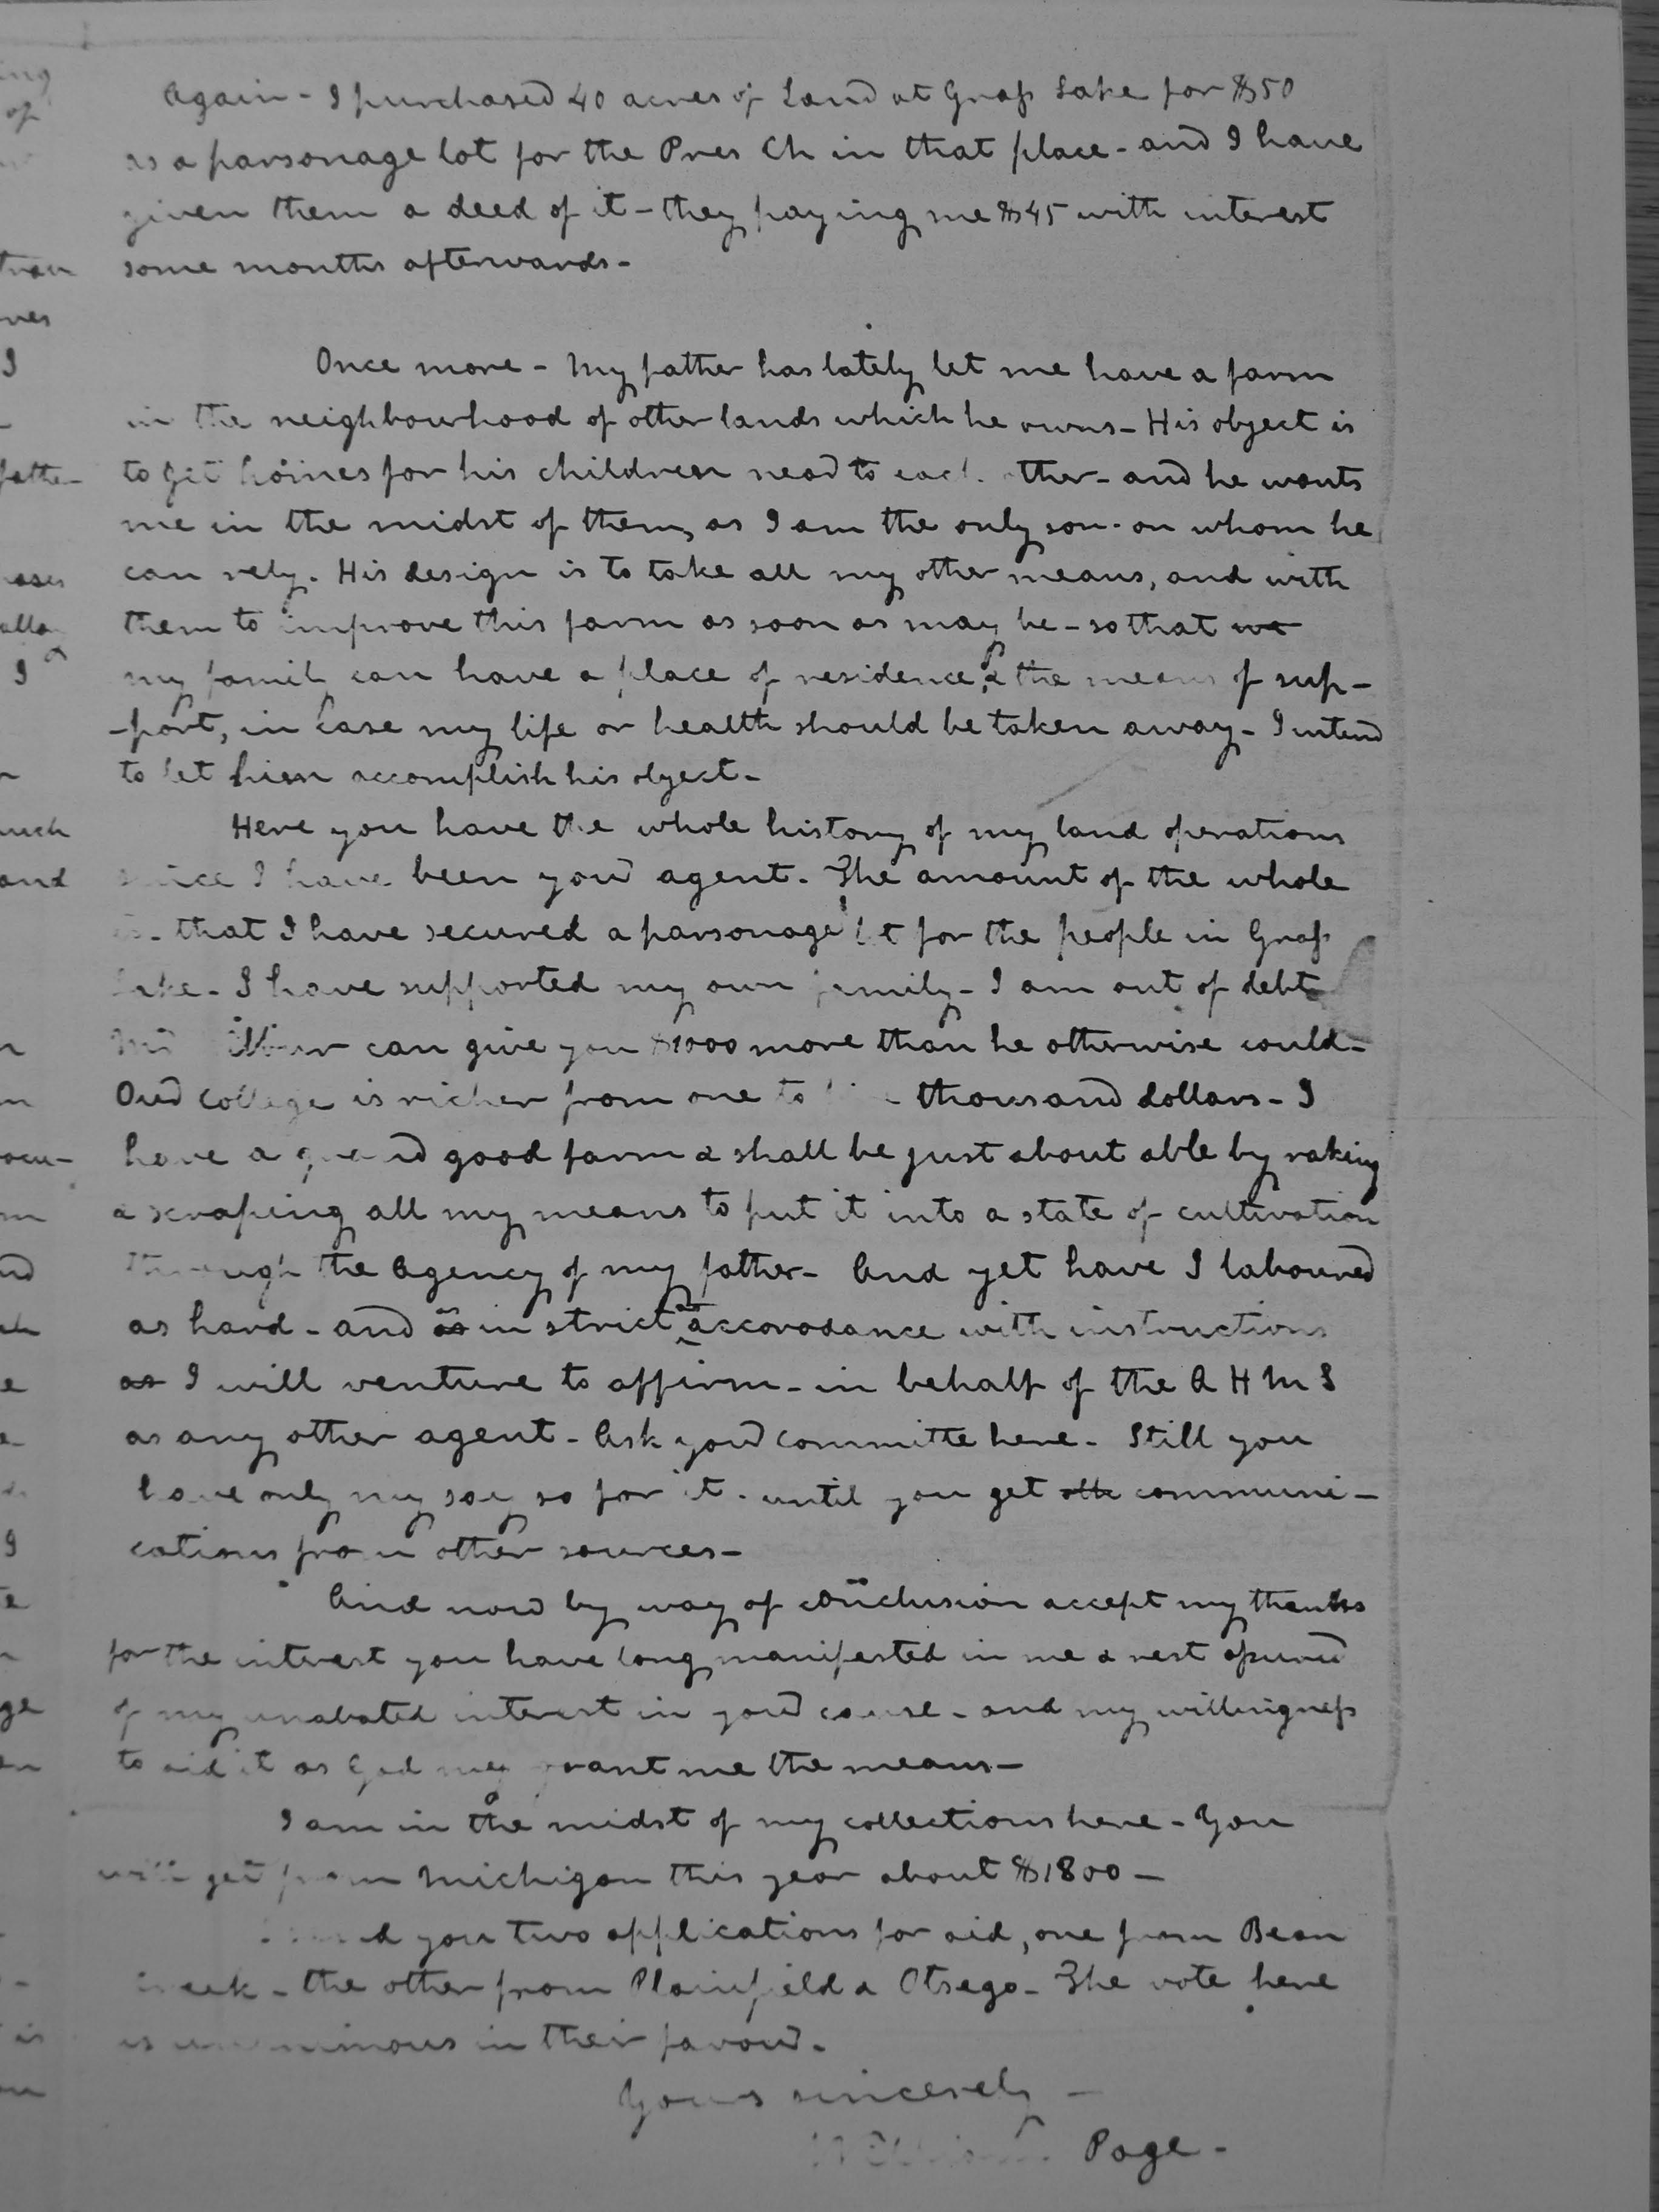 Again - I purchased 40 acres of Land at Grass Lake for $50
as a parsonage lot for the Pres Ch in that place - and I have
given them a deed of it - they paying me $45 with interest
some months afterwards -
Once more - My father has lately let me have a farm
in the neighbourhood of other lands which he owns - His object is
to get homes for his children near to each other - and he wants
me in the midst of them, as I am the only son - on whom he
can rely. His design is to take all my other means, and with
them to improve this farm as soon as may be - so that we
my family can have a place of residence, & the means of sup-
-port, in case my life or health should be taken away - I intend
to let him accomplish his object -
Here you have the whole history of my land operations
since I have been your agent. The amount of the whole
is - that I have secured a parsonage lot for the people in Grass
Lake - I have supported my own family - I am out of debt
can give you $1000 more than he otherwise would -
Our College is richer from one to thousand dollars - I
have a good farm & shall be just about able by raking
& scraping all my means to put it into a state of cultivation
through the Agency of my father - And yet have I laboured
as hard - and as in strict accorodance with instructions
as I will venture to affirm - in behalf of the A H M S
as any other agent - Ask your committe here - Still you
have only my say so for it - until you get communi-
cations from other sources -
And now by way of conclusion accept my thanks
for the interest you have long manifested in me & rest assured
of my unabated interest in your cause - and my willingness
to aid it as God may grant me the means -
I am in the midst of my collections here - You
will get from Michigan this year about $1800 -
I send you two applications for aid, one from Bean
Creek - the other from Plainfield & Otsego - The vote here
is unanimous in their favour.
Yours sincerely -
Page -